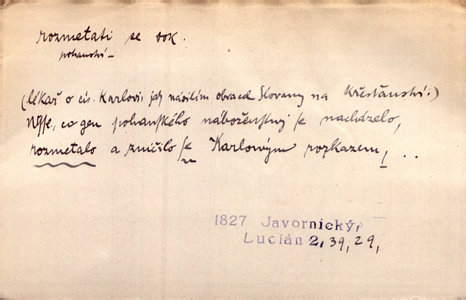 rozmetati se dok.
pohanství
(lékař o cís. Karlovi: jak násilím obracel Slovany na Křestanství:)
Wsse, co gen pohanského náboženstwj se nacházelo,
rozmetalo a zničilo se Karlowým rozkazem, ...
1827 Javornický,
Lucián 2, 39, 29,